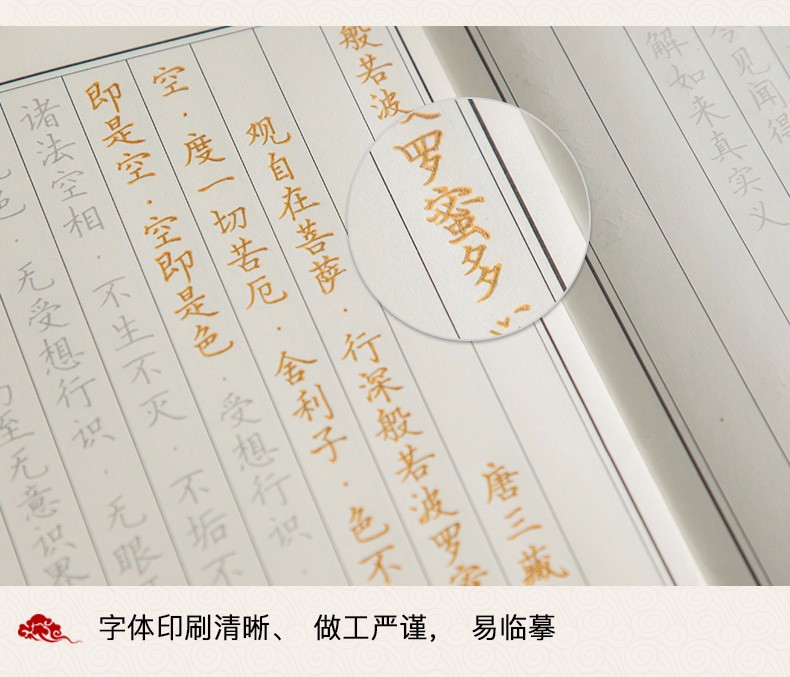 今见闻得
解如来真实义
般若波罗蜜多
唐三藏
观自在菩萨·行深般若波罗蜜
空·度一切苦厄·舍利子·色不
即是空·空即是色·受想行识·
诸法空相·不生不灭·不垢不
色·无受想行识·无眼
至无意识界
字体印刷清晰、 做工严谨, 易临摹